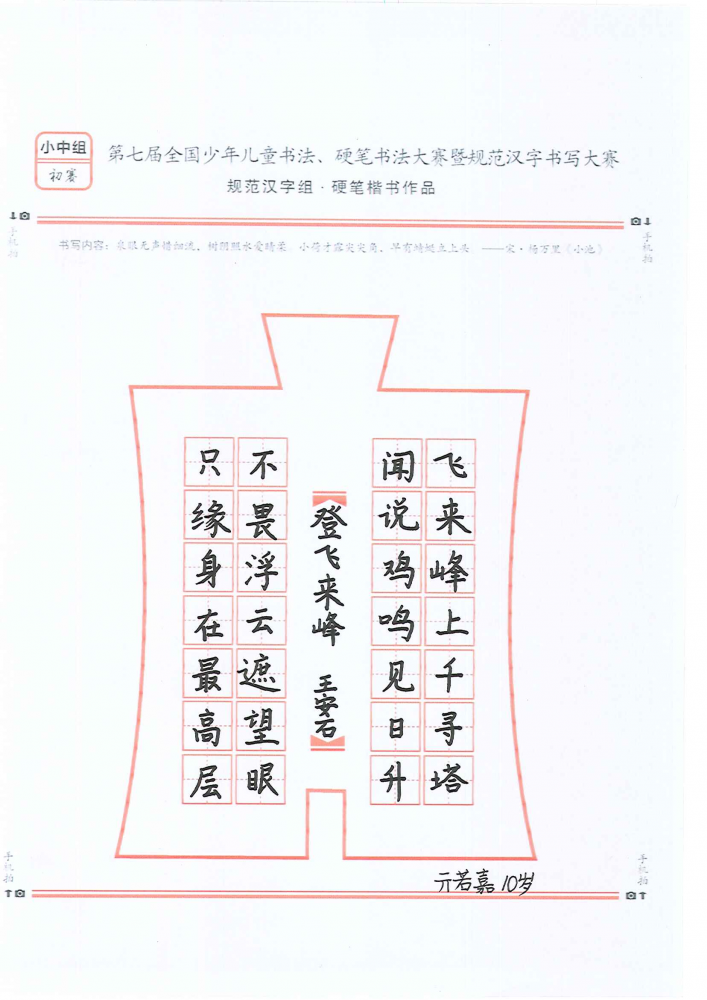 小中组
初赛
第七届全国少年儿童书法、硬笔书法大赛暨规范汉字书写大赛
规范汉字组·硬笔楷书作品
手机拍
手机拍
书写内容：泉眼无声惜细流，树阴照水爱晴柔。小荷才露尖尖角，早有蜻蜓立上头。——宋·杨万里《小池》
飞来峰上千寻塔
闻说鸡鸣见日升
登飞来峰 王安石
不畏浮云遮望眼
只缘身在最高层
亓若嘉 10岁
手机拍
手机拍